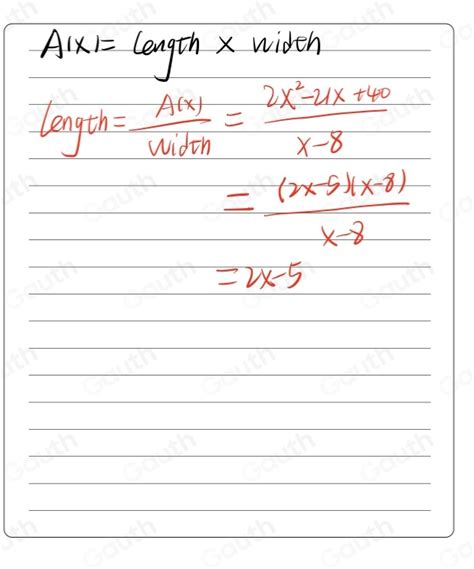 A(x)= Length × width
Length = A(x)/width = 2x²-21x+40/x-8
= (2x-5)(x-8)/x-8
= 2x-5